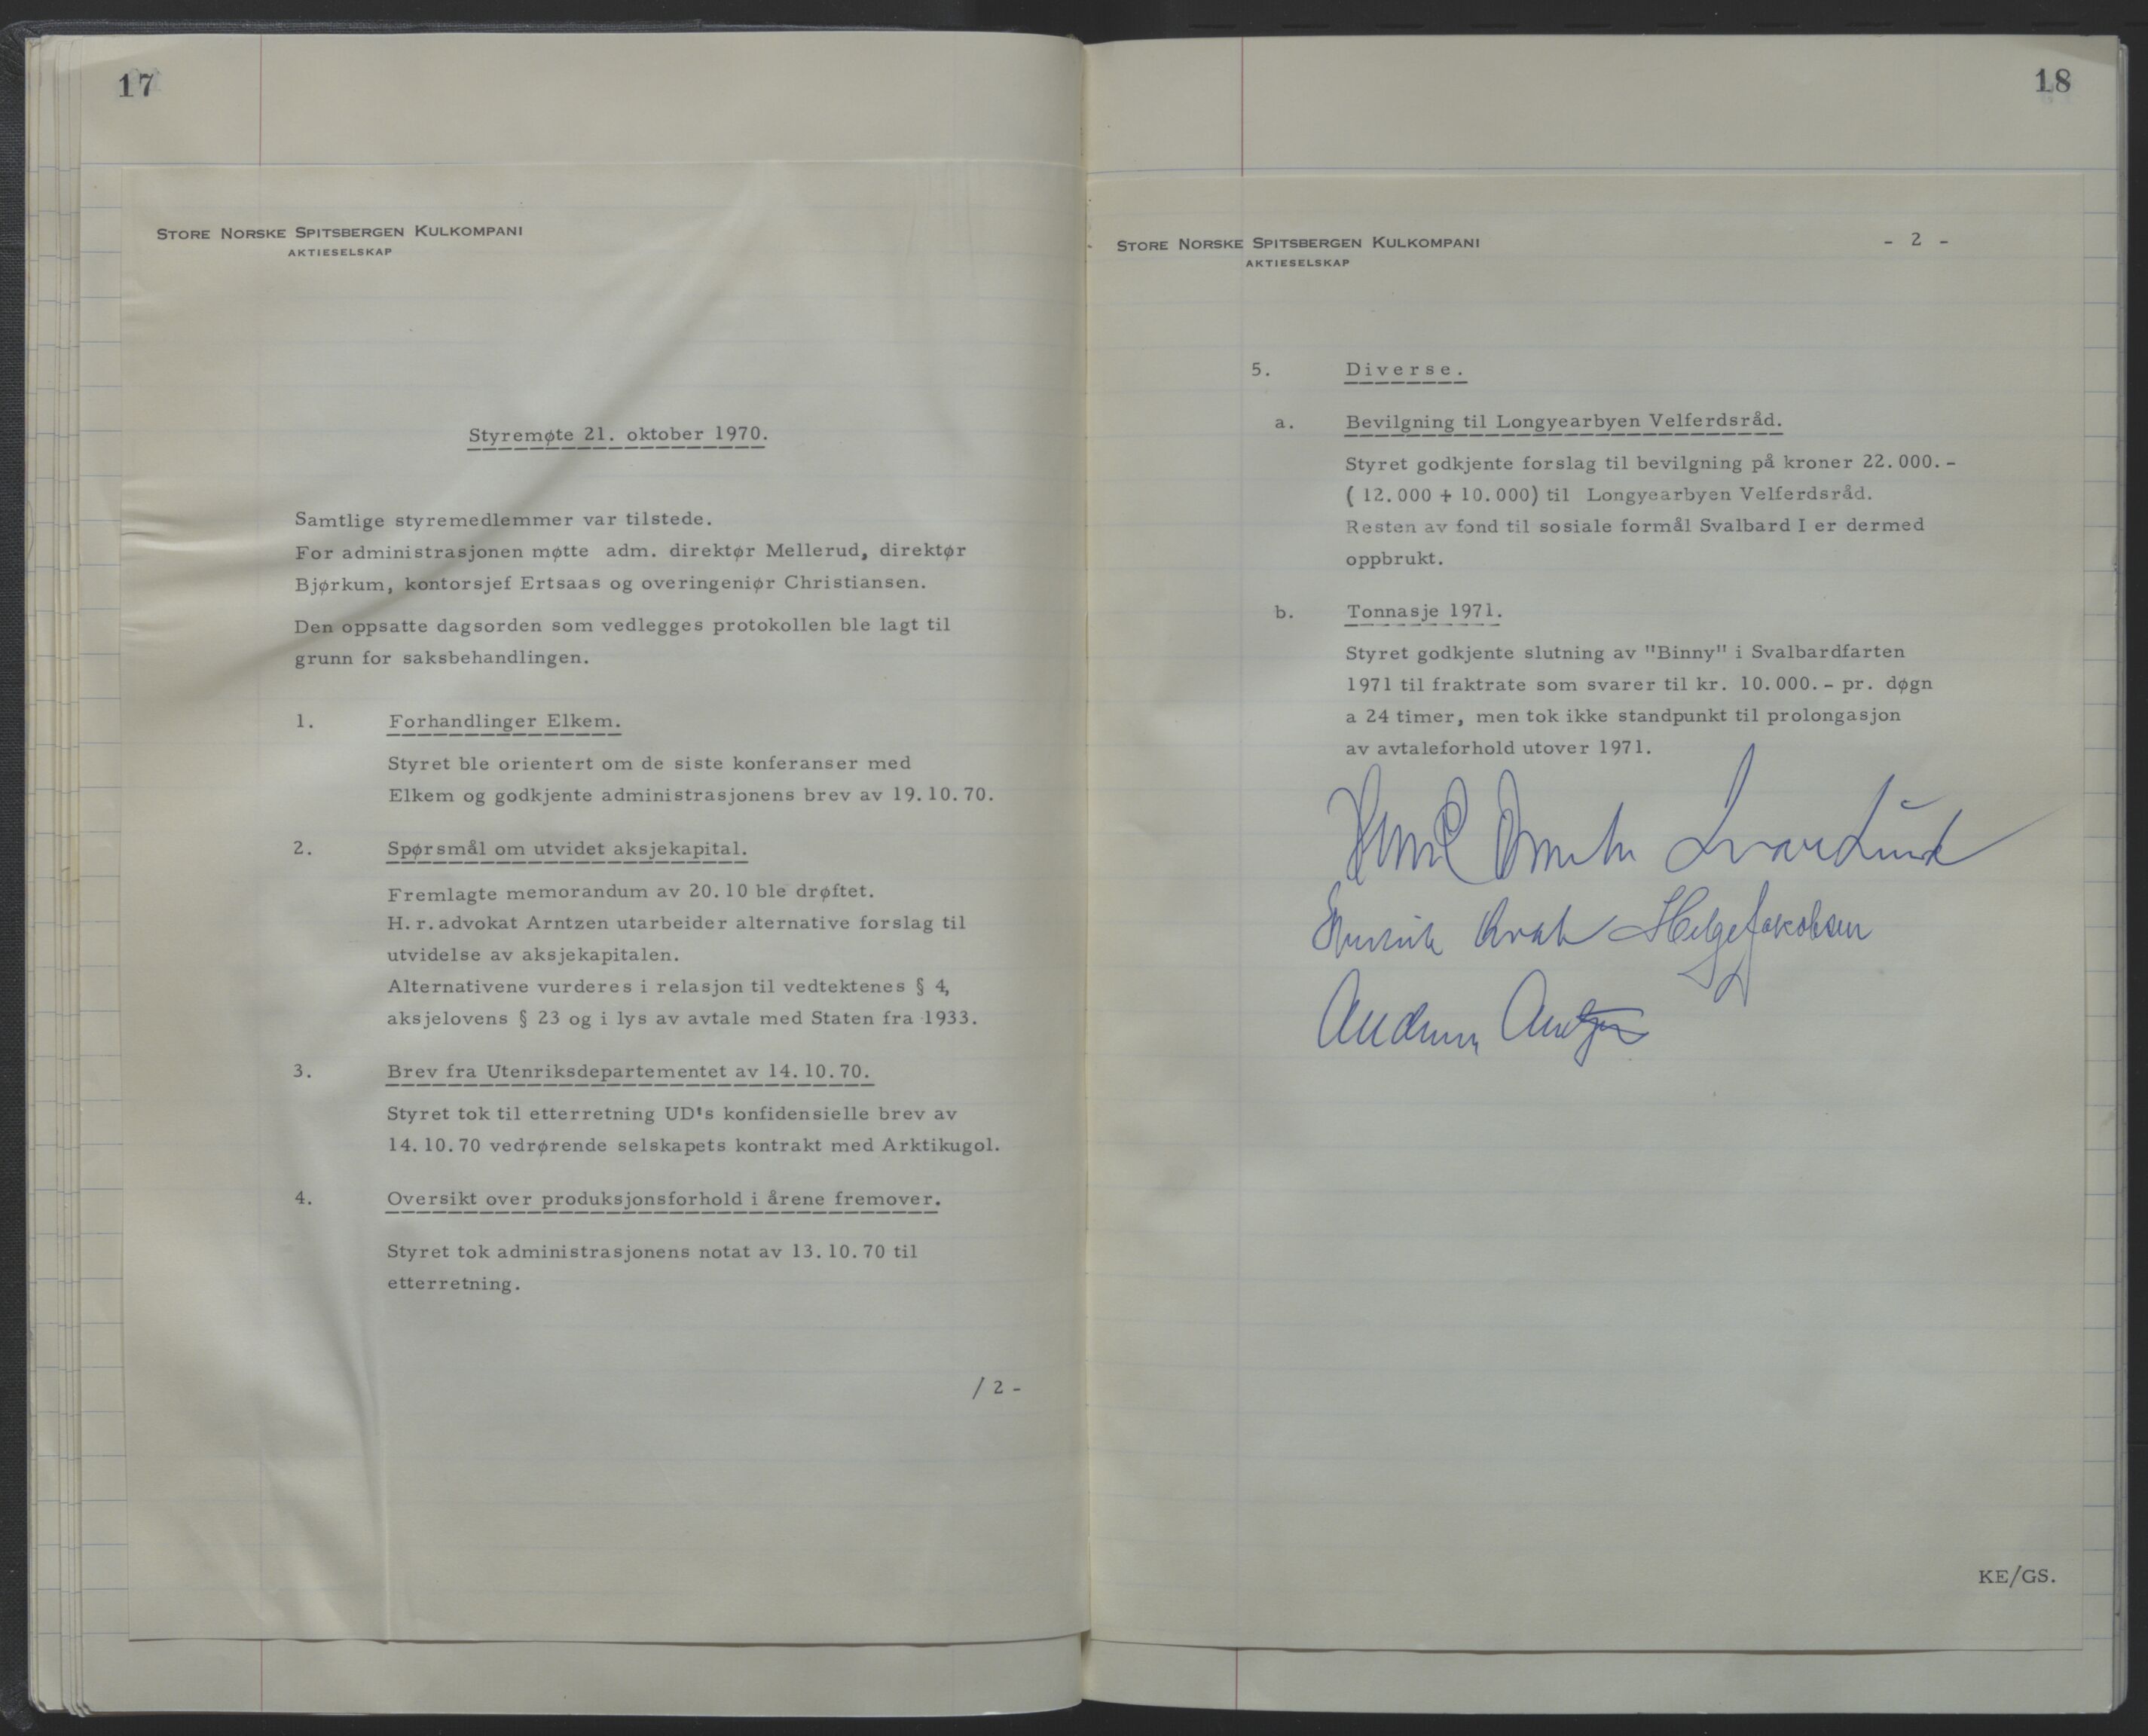 17
STORE NORSKE SPITSBERGEN KULKOMPANI
AKTIESELSKAP
Styremøte 21. oktober 1970.
Samtlige styremedlemmer var tilstede.
For administrasjonen møtte adm. direktør Mellerud, direktør
Bjørkum, kontorsjef Ertsaas og overingeniør Christiansen.
Den oppsatte dagsorden som vedlegges protokollen ble lagt til
grunn for saksbehandlingen.
1. Forhandlinger Elkem.
Styret ble orientert om de siste konferanser med
Elkem og godkjente administrasjonens brev av 19.10.70.
2. Spørsmål om utvidet aksjekapital.
Fremlagte memorandum av 20.10 ble drøftet.
H.r.advokat Arntzen utarbeider alternative forslag til
utvidelse av aksjekapitalen.
Alternativene vurderes i relasjon til vedtektenes § 4,
aksjelovens § 23 og i lys av avtale med Staten fra 1933.
3. Brev fra Utenriksdepartementet av 14.10.70.
Styret tok til etterretning UD's konfidensielle brev av
14.10.70 vedrørende selskapets kontrakt med Arktikugol.
4. Oversikt over produksjonsforhold i årene fremover.
Styret tok administrasjonens notat av 13.10.70 til
etterretning.
/ 2 -
18
STORE NORSKE SPITSBERGEN KULKOMPANI
AKTIESELSKAP
- 2 -
5. Diverse.
a. Bevilgning til Longyearbyen Velferdsråd.
Styret godkjente forslag til bevilgning på kroner 22.000.-
( 12.000 + 10.000) til Longyearbyen Velferdsråd.
Resten av fond til sosiale formål Svalbard I er dermed
oppbrukt.
b. Tonnasje 1971.
Styret godkjente slutning av "Binny" i Svalbardfarten
1971 til fraktrate som svarer til kr. 10.000.- pr. døgn
a 24 timer, men tok ikke standpunkt til prolongasjon
av avtaleforhold utover 1971.
Helge Jakobsen
Andreas Arntzen
KE/GS.